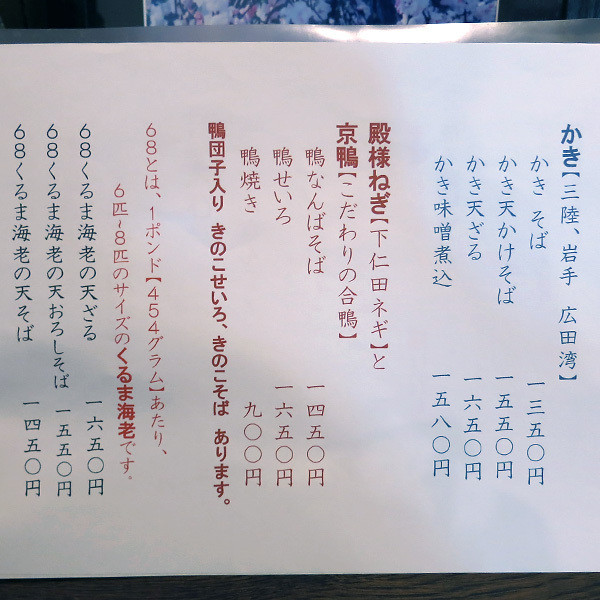 かき【三陸、岩手　広田湾】
かき そば　一三五〇円
かき天かけそば　一五五〇円
かき天ざる　一六五〇円
かき味噌煮込　一五八〇円
殿様ねぎ【下仁田ネギ】と
京鴨【こだわりの合鴨】
鴨なんばそば　一四五〇円
鴨せいろ　一六五〇円
鴨焼き　九〇〇円
鴨団子入り きのこせいろ、きのこそば あります。
６８とは、１ポンド【４５４グラム】あたり、
６匹~８匹のサイズのくるま海老です。
６８くるま海老の天ざる　一六五〇円
６８くるま海老の天おろしそば　一五五〇円
６８くるま海老の天そば　一四五〇円